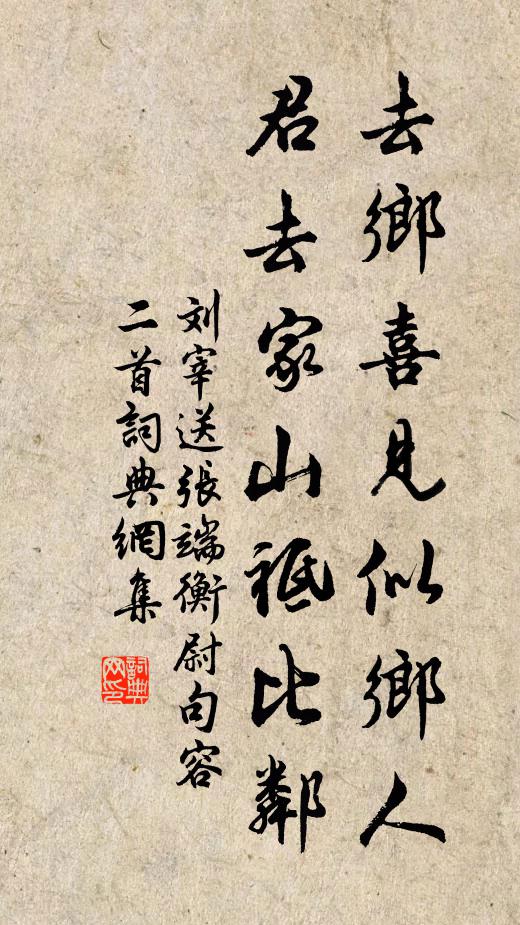 去鄉喜見似鄉人
君去家山祗比鄰
刘宰送張端衡尉句容
二首詞典網集
詞典网印